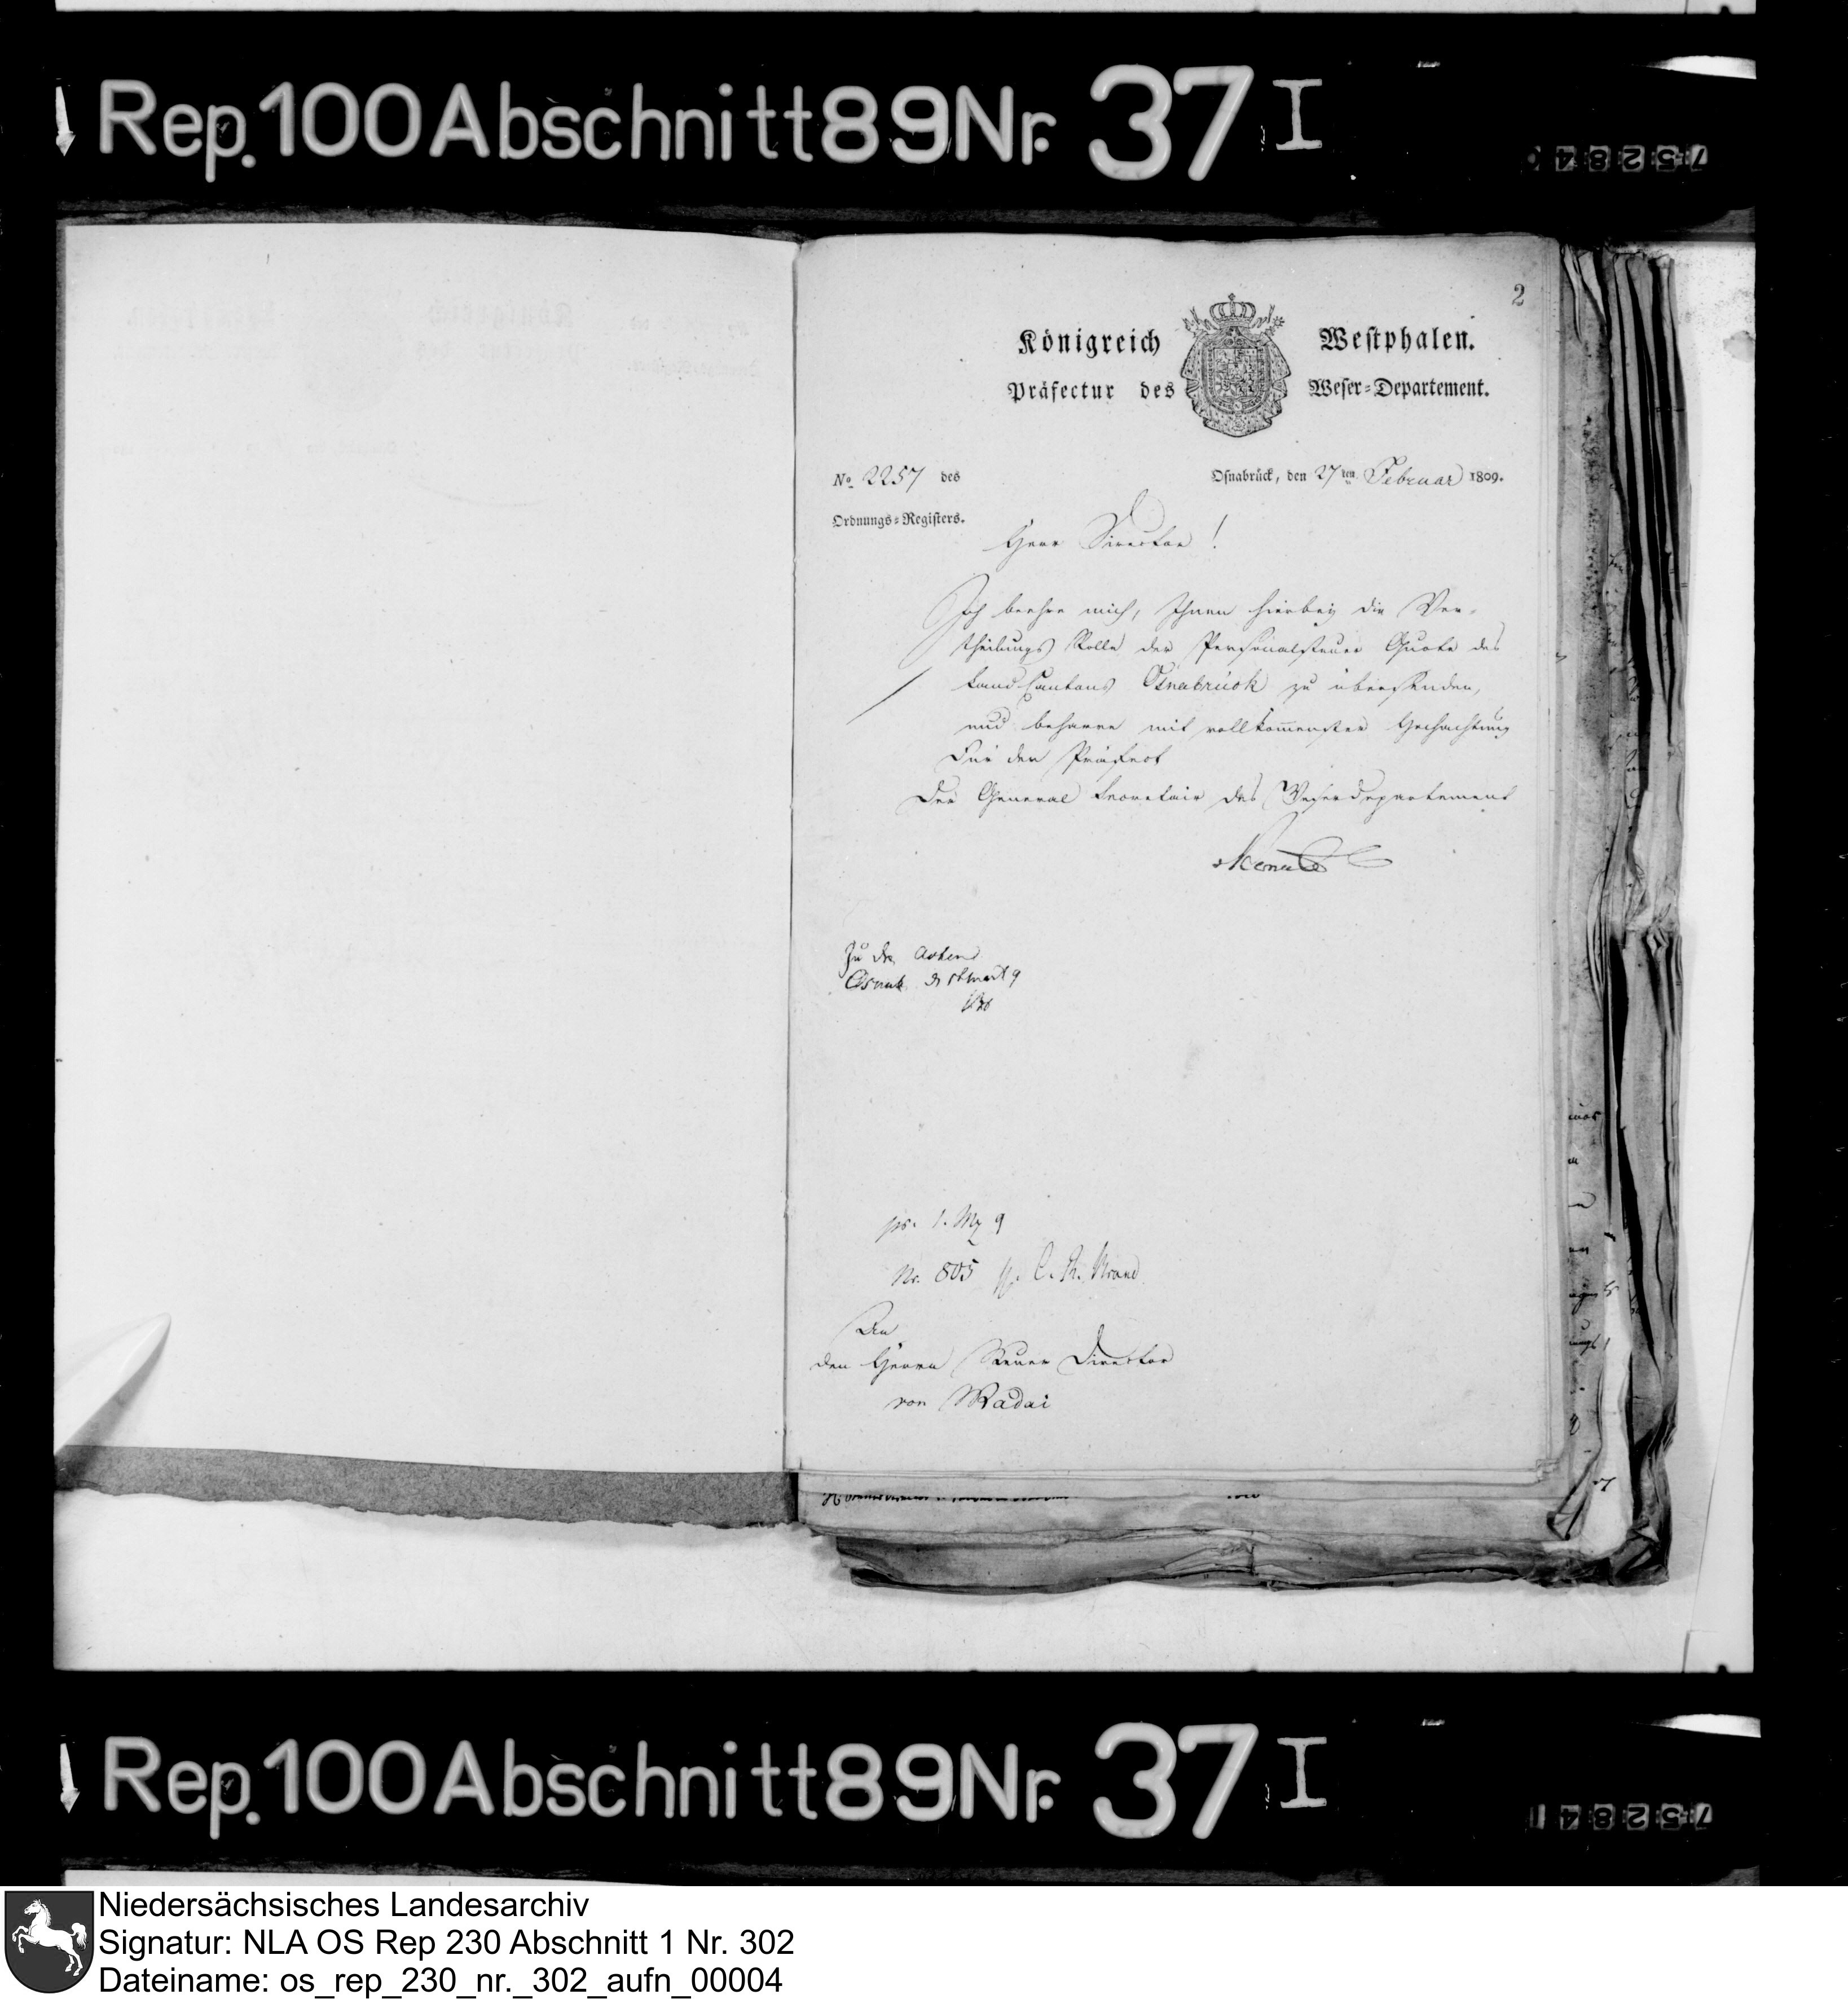 Rep. 100 Abschnitt 89 Nr. 37 I
75284
2
Königreich Westphalen.
Präfectur des Weser-Departement.
No. 2257 des
Ordnungs-Registers.
Osnabrück, den 27ten Februar 1809.
Herr Director!
Ich beehre mich, Ihnen hierbey die Ver-
theilungs Rolle der Personalsteuer Quote des
Land Cantons Osnabrück zu übersenden,
und beharre mit vollkommenster Hochachtung
Für den Präfect
Der General Secretair des Weserdepartement
Zu den Acten
Osnab. d 1t Mart 9
pr. 1. Mz 9
Nr. 805
Den
den Herrn Steuer Director
von Madai
Rep. 100 Abschnitt 89 Nr. 37 I
75284
Niedersächsisches Landesarchiv
Signatur: NLA OS Rep 230 Abschnitt 1 Nr. 302
Dateiname: os_rep_230_nr._302_aufn_00004